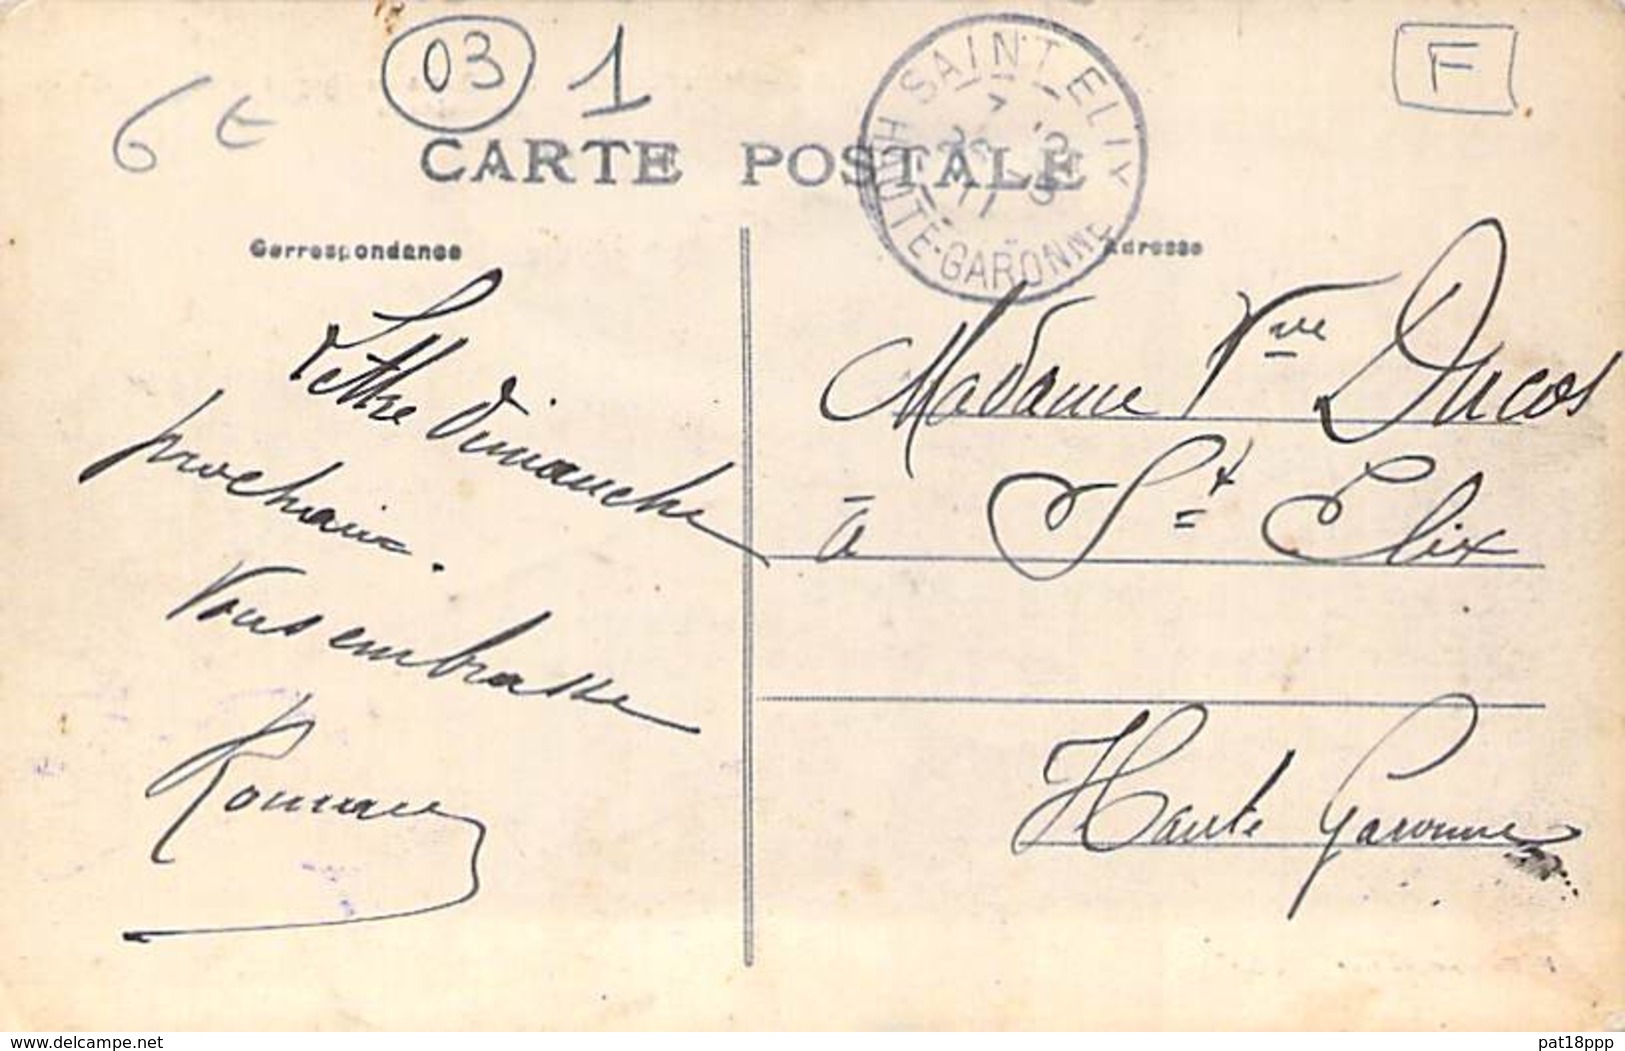 03
1
F
6 €
CARTE POSTALE
SAINT ELIX
HAUTE-GARONNE
Correspondance
Adresse
Lettre Dimanche
prochain.
Vous embrasse
Madame Vve Ducos
à St Elix
Haute Garonne
www.delcampe.net
pat18ppp